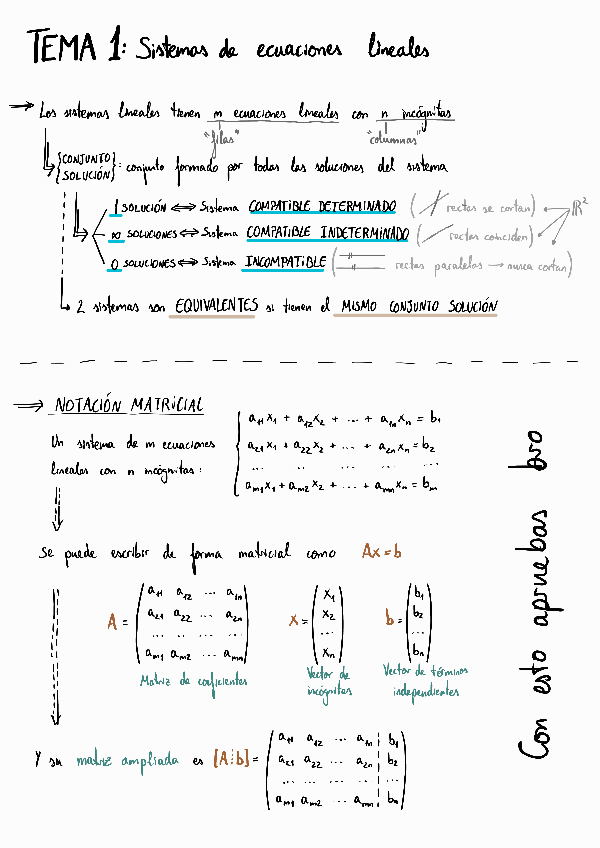 TEMA 1: Sistemas de ecuaciones lineales
→ Los sistemas lineales tienen m ecuaciones lineales con n incógnitas
"filas" "columnas"
{CONJUNTO SOLUCIÓN}: conjunto formado por todas las soluciones del sistema
1 SOLUCIÓN ⟺ Sistema COMPATIBLE DETERMINADO (rectas se cortan) ℝ²
∞ SOLUCIONES ⟺ Sistema COMPATIBLE INDETERMINADO (rectas coinciden)
0 SOLUCIONES ⟺ Sistema INCOMPATIBLE (rectas paralelas → nunca cortan)
2 sistemas son EQUIVALENTES si tienen el MISMO CONJUNTO SOLUCIÓN
⟹ NOTACIÓN MATRICIAL
Un sistema de m ecuaciones
lineales con n incógnitas:
a11x1 + a12x2 + ... + a1nxn = b1
a21x1 + a22x2 + ... + a2nxn = b2
... ... ... ...
am1x1 + am2x2 + ... + amnxn = bm
Se puede escribir de forma matricial como Ax=b
A =
a11 a12 ... a1n
a21 a22 ... a2n
... ... ... ...
am1 am2 ... amn
Matriz de coeficientes
x =
x1
x2
...
xn
Vector de
incógnitas
b =
b1
b2
...
bn
Vector de términos
independientes
Y su matriz ampliada es [A⋮b] =
a11 a12 ... a1n b1
a21 a22 ... a2n b2
... ... ... ... ...
am1 am2 ... amn bn
Con esto apruebas bro